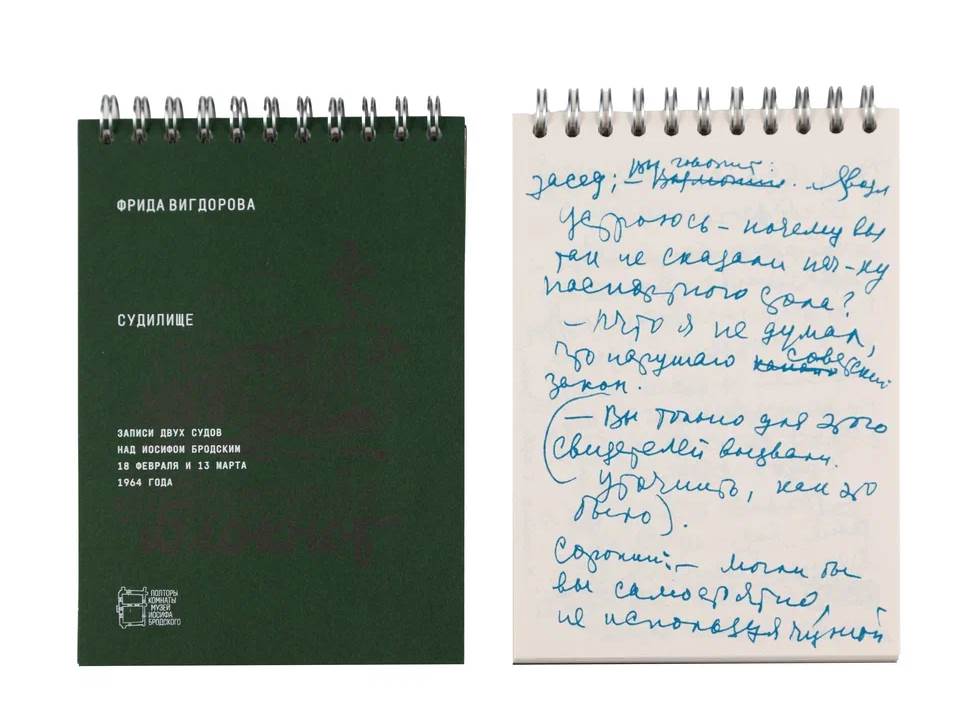 ФРИДА ВИГДОРОВА
СУДИЛИЩЕ
ЗАПИСИ ДВУХ СУДОВ
НАД ИОСИФОМ БРОДСКИМ
18 ФЕВРАЛЯ И 13 МАРТА
1964 ГОДА
ПОЛТОРЫ
КОМНАТЫ
МУЗЕЙ
ИОСИФА
БРОДСКОГО
вы говорите:
засед; –
устроюсь – почему вы
так не сказали нач-ку
паспортного стола?
– Что я не думал,
что нарушаю советский
закон.
( – Вы только для этого
свидетелей вызвали.
Уточнить, как это
было).
Сорокин: – могли бы
вы самостоятельно,
не используя чужой